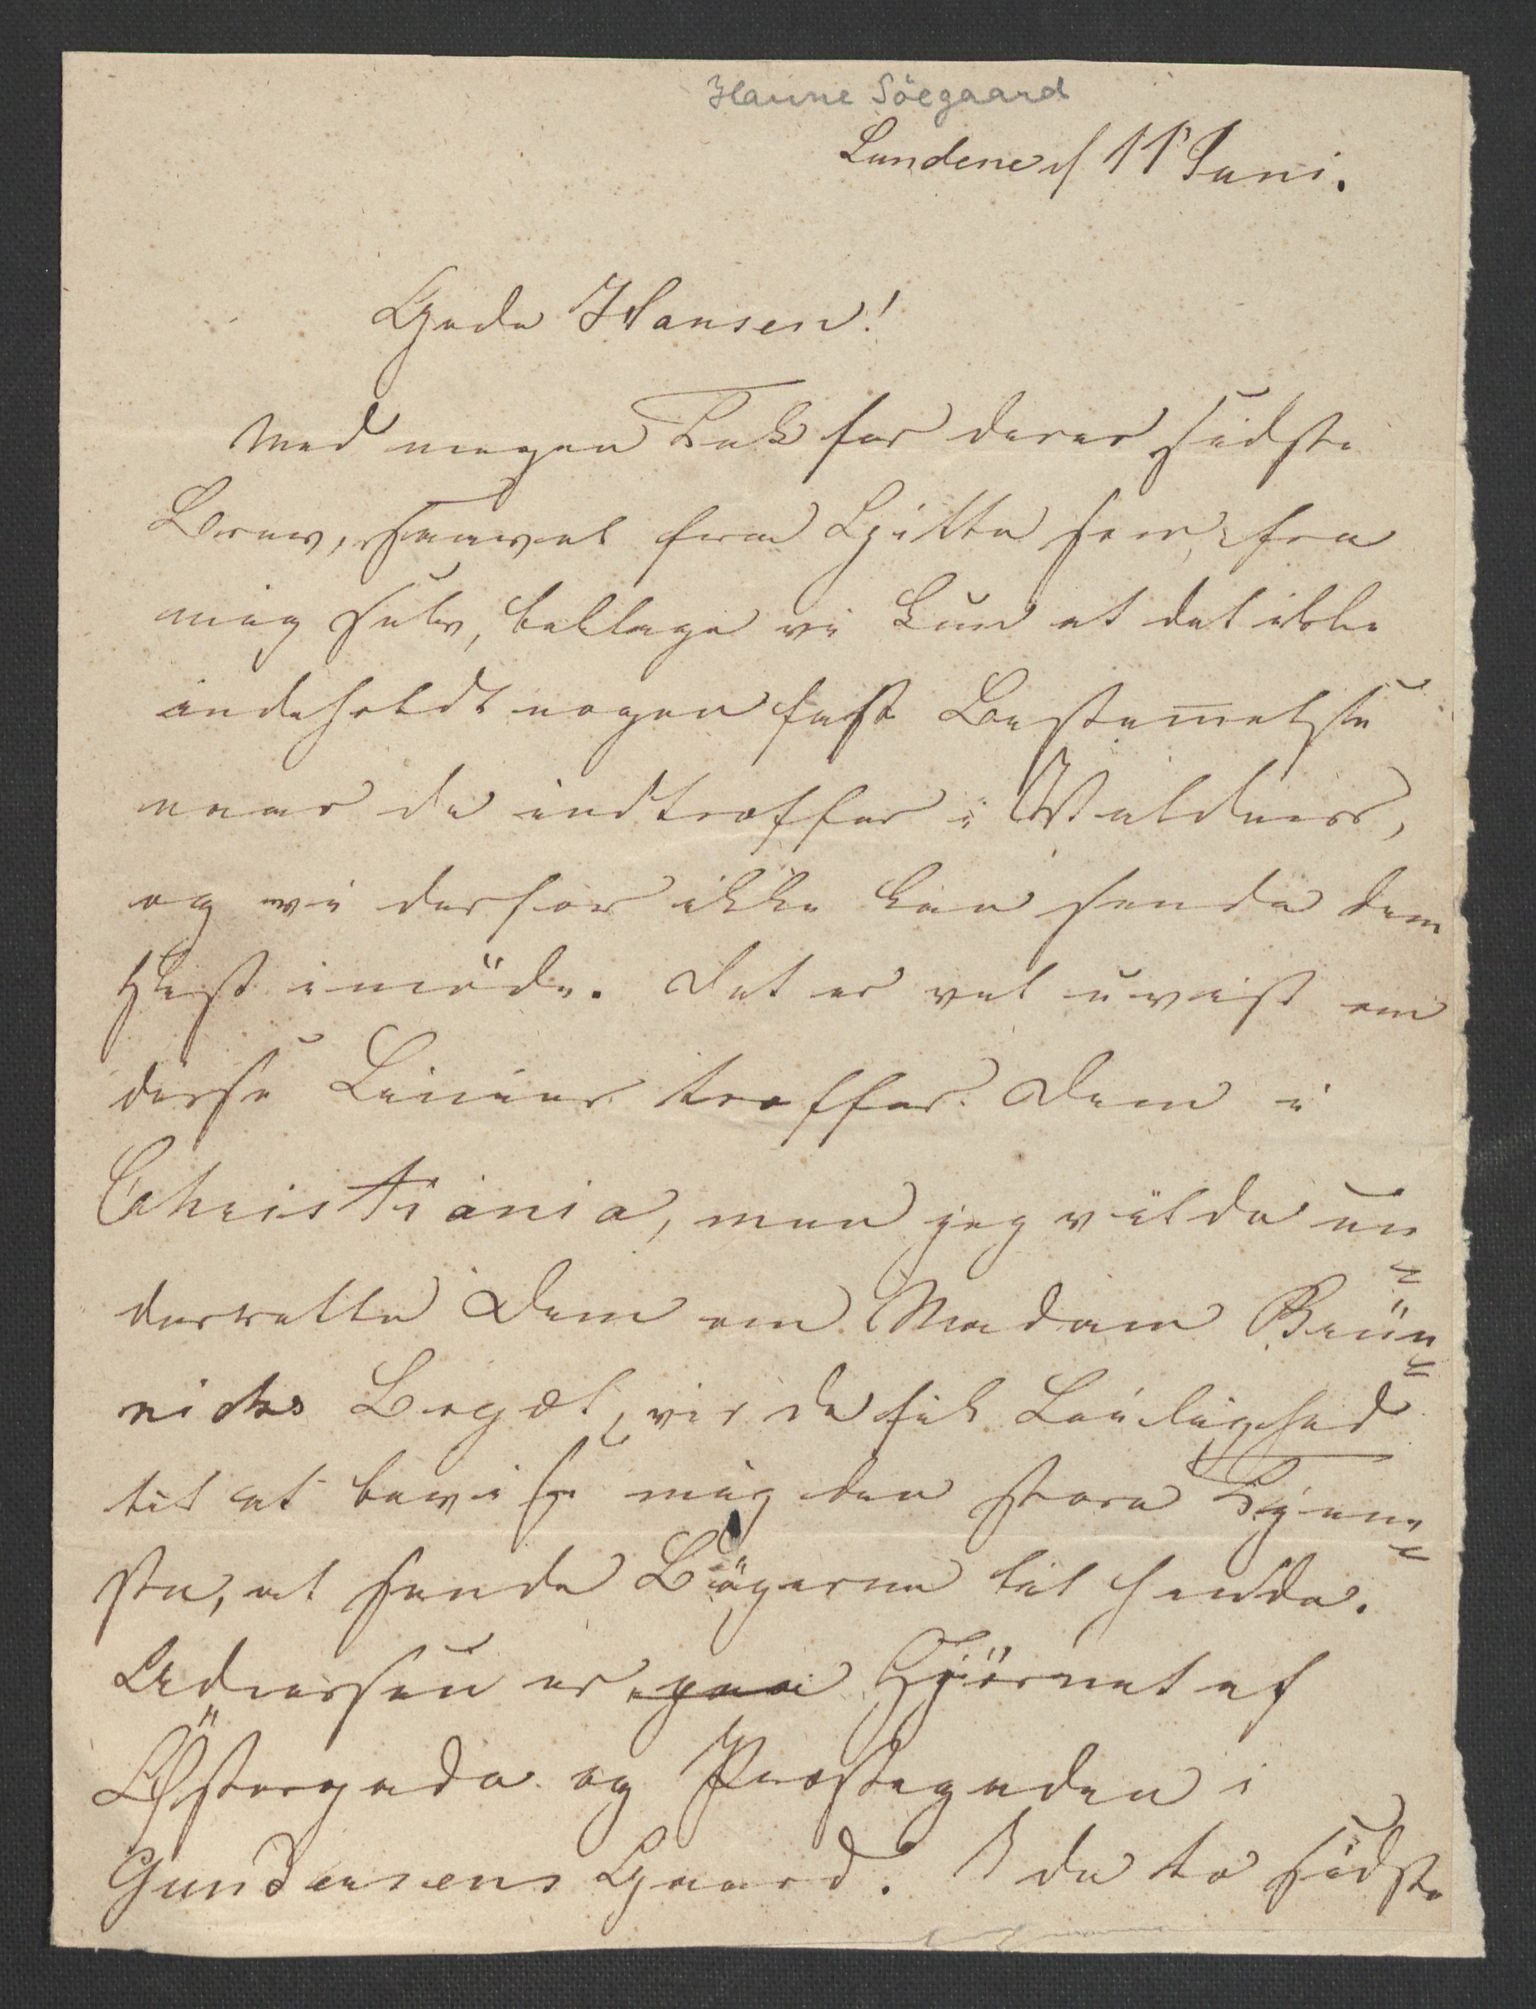 Hanne Söegaard
Lundene d 11 Juni.
Gode Hansen!
Med megen Tak for deres sidste
Brev, saavel fra Gitta som fra
mig selv, beklage vi kun at det ikke
indeholdt nogen fast Bestemelse
naar de indtræffer i Walders,
og vi derfor ikke kan sende dem
Hest imöde. Det er vel uvist om
disse Linier træffer Dem i
Christiania, men jeg vilde un
derrette Dem om Madam Brün
nichs Bopæl, vis de fik Leilighed
til at bevise mig den store Tjene
ste, at sende Bögerne til hende.
Adressen er paa Hjörnet af
Östergade og Præstegaden i
Gundersens Gaard. I de to sidste